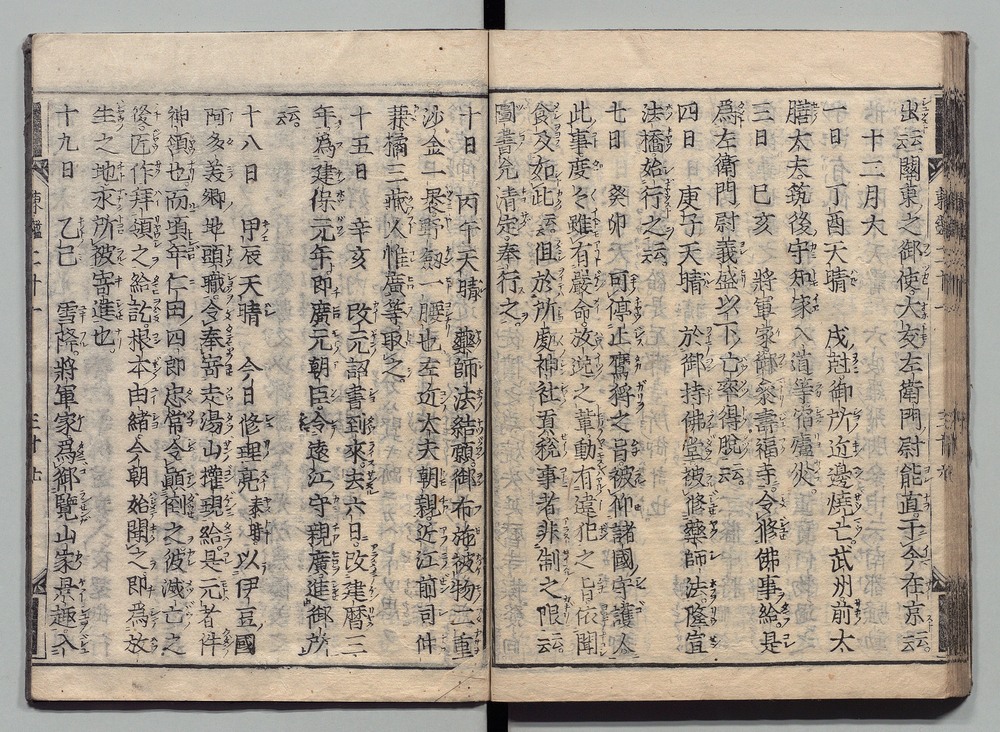 出云云關東之御使大友左衛門尉能直于今在京云云
十二月大
一日　丁酉天晴　戌尅御所近邊燒亡武州前太
膳大夫筑後守知家入道等宿廬災
三日　巳亥　將軍家御參壽福寺令修佛事給是
爲左衛門尉義盛以下亡卒得脫云云
四日　庚子天晴　於御持佛堂被修藥師法隆宣
法橋始行之云云
七日　癸卯　可停止鷹狩之旨被仰諸國守護人
此事度々雖有嚴命放逸之輩動有違犯之旨依聞
食及如此云云但於所處神社貢稅事者非制之限云云
圖書允清定奉行之
十日　丙午天晴　藥師法結願御布施被物二重
沙金一裹劔一腰也左近大夫朝親近江前司仲
兼橘三藏人惟廣等取之
十五日　辛亥　改元詔書到來去六日改建曆三
年爲建保元年即廣元朝臣令遠江守親廣進御所
云云
十八日　甲辰天晴　今日修理亮泰時以伊豆國
阿多美鄉地頭職令奉寄走湯山權現給是元者件
神領也而頃年仁田四郎忠常令顚倒之彼滅亡之
後匠作拜領之給訖根本由緒今朝始聞之即爲放
生之地永所被寄進也
十九日　乙巳　雪降將軍家爲御覽山家景趣入
東鑑二十一